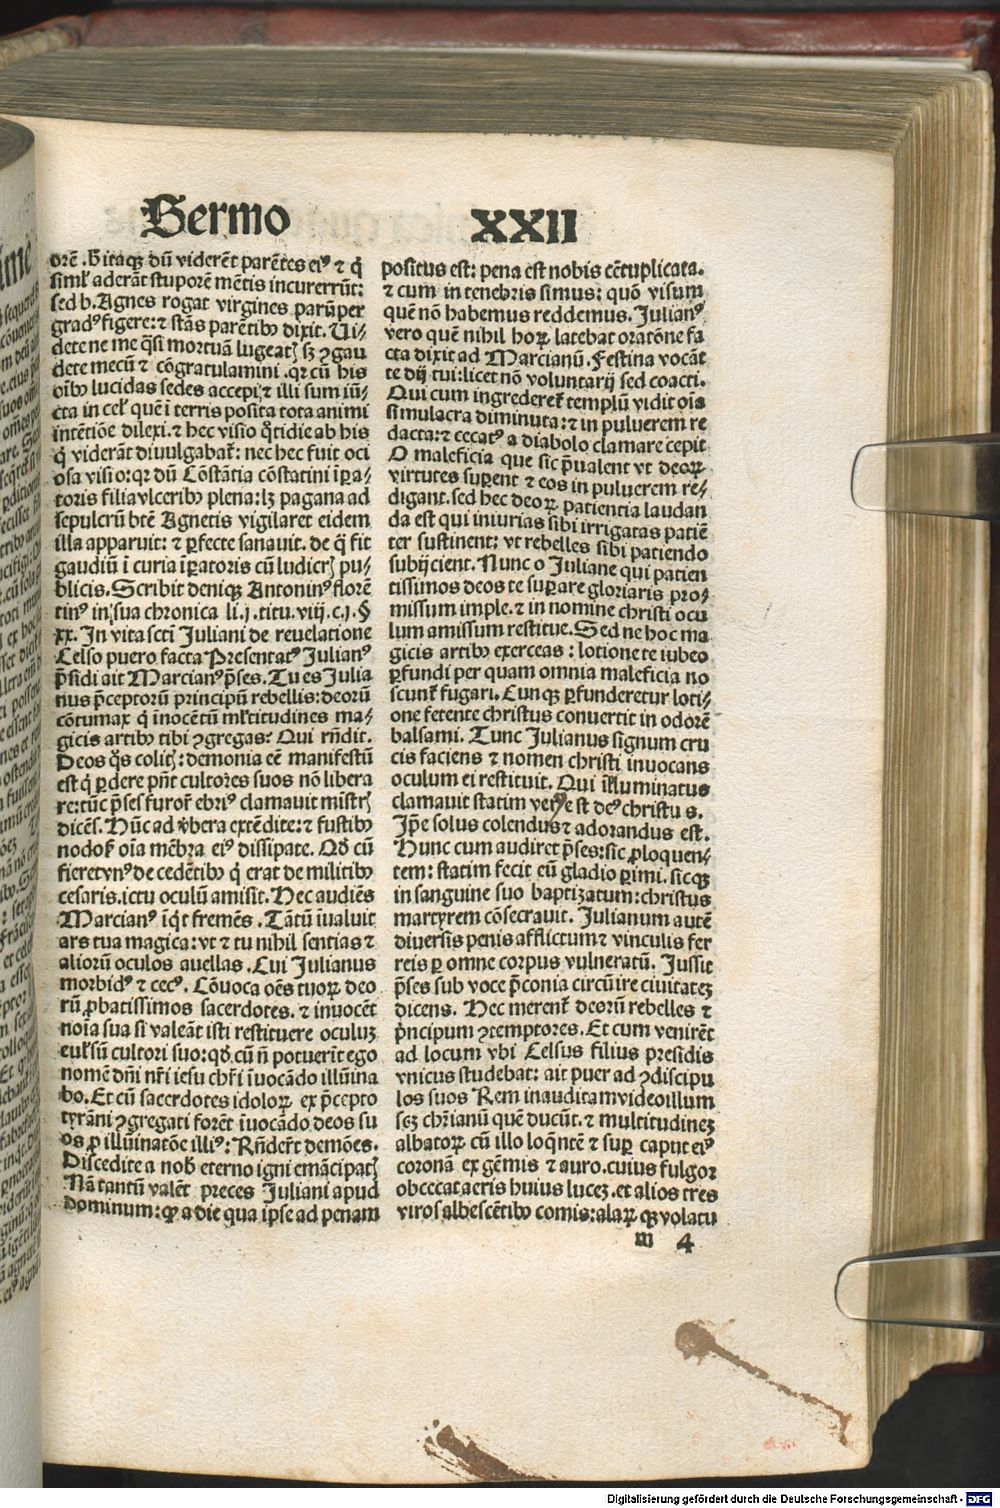 Sermo XXII
orē. Hitaqꝫ dū viderēt parētes eiꝰ ⁊ q̇
simĺ aderāt stuporē mētis incurerrūt:
sed b. Agnes rogat virgines parūper
gradꝰ figere: ⁊ stās parētibꝰ dixit. Ui⸗
dete ne me q̄si mortuā lugeatꝭ sꝫ ꝯgau
dete mecū ⁊ cōgratulamini. qꝛ cū his
oībꝰ lucidas sedes accepi: ⁊ illi sum iū⸗
cta in celꝭ quē ī terris posita tota animi
intētiōe dilexi. ⁊ hec visio q̊tidie ab his
q̇ viderāt divulgabat̉: nec hec fuit oci
osa visio: qꝛ dū Cōstātia cōstatini īꝑa⸗
toris filia vlceribꝰ plena: lꝫ pagana ad
sepulcrū btē Agnetis vigilaret eidem
illa apparuit: ⁊ ꝑfecte sanauit. de q̊ fit
gaudiū ī curia īꝑatoris cū ludicrꝭ pu⸗
blicis. Scribit deniqꝫ Antoninꝰ florē
tinꝰ in sua chronica li. j. titu. viij. c. j. §
xx. In vita scti Juliani de reuelatione
Celso puero facta Presentatꝰ Julianꝰ
p̄sidi ait Marcianꝰ p̄ses. Tu es Julia
nus p̄ceptorū principū rebellis: deorū
cōtumax q̇ inocētū mĺtitudines ma⸗
gicis artibꝰ tibi ꝯgregas? Qui rn̄dit.
Deos q̊s colitꝭ: demonia eē manifestū
est q̇ ꝑdere pn̄t cultores suos nō libera
re: tūc p̄ses furor̉ ebriꝰ clamauit mīstrꝭ
dicēs. Hūc ad v̇bera extēdite: ⁊ fustibꝰ
nodos̉ oīa mēbra eiꝰ dissipate. Qđ cū
fieret vnꝰ de cedētibꝰ q̇ erat de militibꝰ
cesaris. ictu oculū amisit. Hec audiēs
Marcianꝰ īq̇t fremēs. Tātū īualuit
ars tua magica: vt ⁊ tu nihil sentias ⁊
aliorū oculos auellas. Cui Julianus
morbidꝰ ⁊ cecꝰ. Cōuoca oēs tuoꝝ deo
rū ꝓbatissimos sacerdotes. ⁊ inuocēt
noīa sua si valeāt isti restituere oculuꝫ
eulsū cultori suo: qđ cū n̄ potuerīt ego
nomē dn̄i nr̄i iesu chr̄i īuocādo illūina
bo. Et cū sacerdotes idoloꝝ ex p̄cepto
tyrāni ꝯgregati forēt īuocādo deos su
os ꝓ illūinatōe illiꝰ: Rn̄der̄t demōes.
Discedite a nob̉ eterno igni emācipatꝭ
Nā tantū valēt preces Juliani apud
Dominum: qꝙ a die qua ipse ad penam
positus est: pena est nobis cētuplicata.
⁊ cum in tenebris simus: quō visum
quē nō habemus reddemus. Julianꝰ
vero quē nihil hoꝝ latebat oratōne fa
cta dixit ad Marcianū. Festina vocāt
te dij tui: licet nō voluntarij sed coacti.
Qui cum ingrederet̉ templū vidit oīa
simulacra diminuta: ⁊ in puluerem re
dacta: ⁊ cecatꝰ a diabolo clamare cepit
O maleficia que sic p̄ualent vt deoꝝ
virtutes suꝑent ⁊ eos in puluerem re⸗
digant. sed hec deoꝝ patientia laudan
da est qui iniurias sibi irrigatas patiē
ter sustinent: vt rebelles sibi patiendo
subijcient. Nunc o Juliane qui patien
tissimos deos te suꝑare gloriaris pro⸗
missum imple. ⁊ in nomine christi ocu
lum amissum restitue. Sed ne hoc ma
gicis artibꝰ exerceas: lotione te iubeo
ꝑfundi per quam omnia maleficia no
scunt̉ fugari. Cunqꝫ ꝑfunderetur loti⸗
one fetente christus conuertit in odorē
balsami. Tunc Julianus signum cru
cis faciens ⁊ nomen christi inuocans
oculum ei restituit. Qui illuminatus
clamauit statim vere est deꝰ christus.
Ip̄e solus colendus ⁊ adorandus est.
Hunc cum audiret p̄ses: sic ꝓloquen⸗
tem: statim fecit eū gladio ꝑimi. sicqꝫ
in sanguine suo baptizatum: christus
martyrem cōsecrauit. Julianum autē
diuersis penis afflictum ⁊ vinculis fer
reis ꝑ omne corpus vulneratū. Jussit
p̄ses sub voce p̄conia circūire ciuitateꝫ
dicens. Hec merent̉ deorū rebelles ⁊
p̓ncipum ꝯtemptores. Et cum venirēt
ad locum vbi Celsus filius presidis
vnicus studebat: ait puer ad ꝯdiscipu
los suos Rem inauditam video illum
sꝫ chr̄ianū quē ducūt. ⁊ multitudineꝫ
albatoꝝ cū illo loq̄ntē ⁊ suꝑ caput eiꝰ
coronā ex gēmis ⁊ auro. cuius fulgor
obcecat aeris huius luceꝫ. et alios tres
viros albescētibꝰ comis: alaꝝ qꝫ volatu
m 4
Digitalisierung gefördert durch die Deutsche Forschungsgemeinschaft - DFG